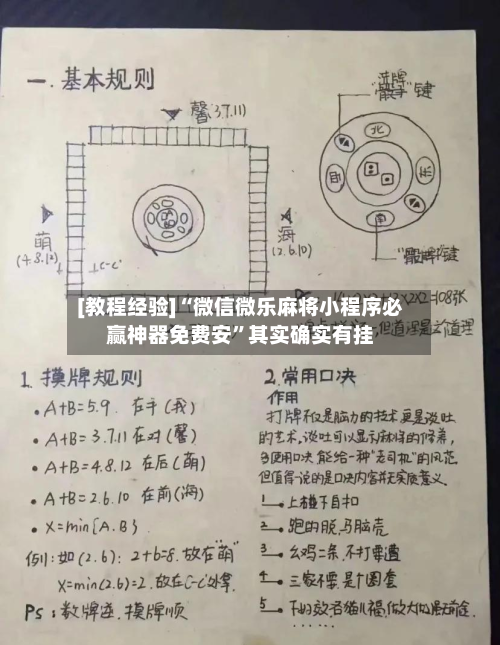 一.基本规则
"洗牌
骰子"键
馨(3.7.11)
北
西
东
南
萌
(4.8.12)
C-C'
海
(2.6.10)
"骰牌"键
[教程经验]“微信微乐麻将小程序必
赢神器免费安”其实确实有挂
1.摸牌规则
• A+B=5.9. 在手(我)
• A+B=3.7.11 在对(馨)
• A+B=4.8.12 在后(萌)
• A+B=2.6.10 在前(海)
• X=min{A.B}
例:如(2.6): 2+6=8.故在"萌"
X=min(2.6)=2.故在C-C'处拿.
Ps:数牌逆.摸牌顺
2.常用口决
作用
打牌不仅是脑力的技术更是谈吐
的艺术,谈吐可以显示麻将的修养,
多使用口决,能给一种"老司机"的风范
但值得说的是口决内容并无实质意义.
1 上碰下自扣
2 跑的脱,马脑壳
3 幺鸡二条,不打要遭
4 三家不要,是个圈套
5
......